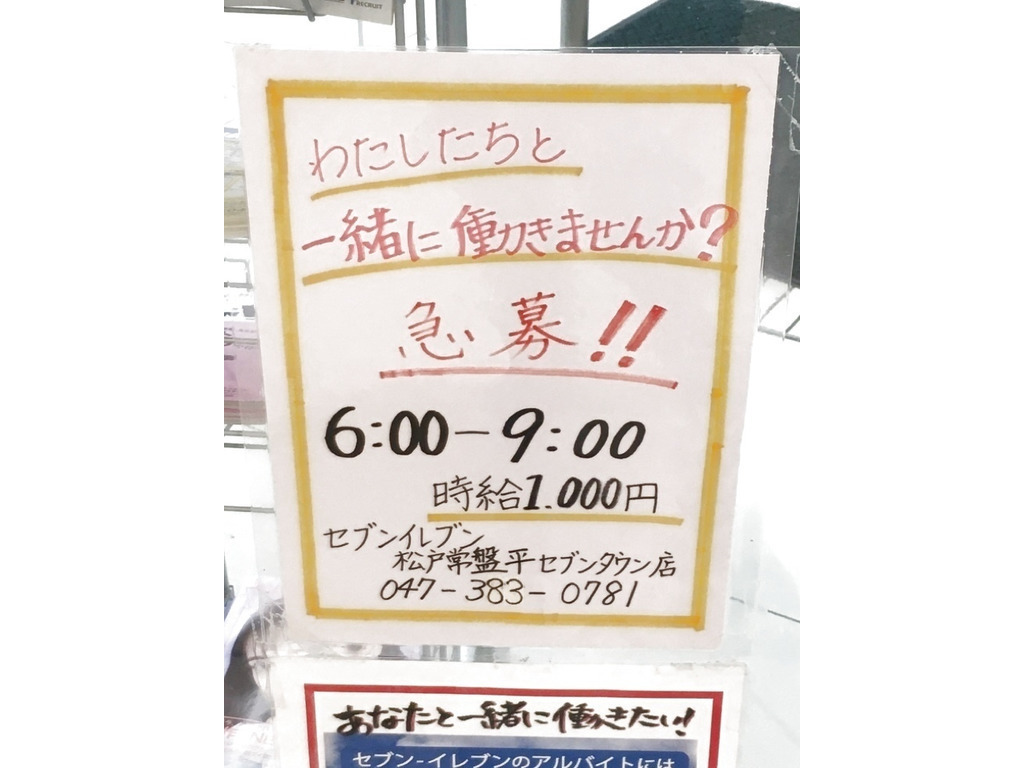 RECRUIT
わたしたちと
一緒に働きませんか?
急募!!
6:00－9:00
時給1.000円
セブンイレブン
松戸常盤平セブンタウン店
047－383－0781
あなたと一緒に働きたい!
セブン-イレブンのアルバイトには